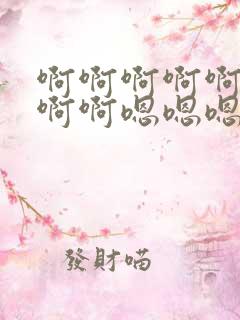 啊啊啊啊啊
啊啊嗯嗯嗯
發財喵